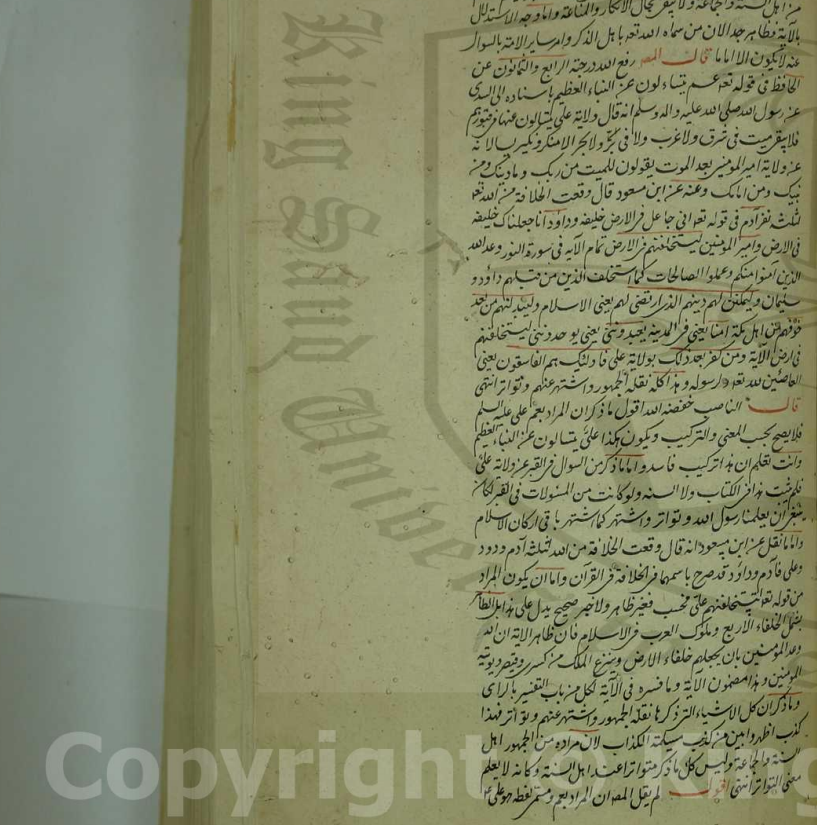 من اهل السنة والجماعة ولا يبقى مجال الانكار والمناعة واما وجه الاستدلال
بالآية فظاهر جدا لان من سماه الله تعه باهل الذكر وامر ساير الامة بالسؤال
عنه لا يكون الا اماما قال المصر رفع الله درجته الرابع والثمانون عن
الحافظ فى قوله تعه عم يتساءلون عن النباء العظيم باسناده الى السدى
عن رسول الله صلى الله عليه واله وسلم انه قال ولاية على يتسالون عنها فى قبورهم
فلا يبقى ميت فى شرق ولا غرب ولا فى بر ولا بحر الا منكر ونكير يسالانه
عن ولاية امير المؤمنين بعد الموت يقولون للميت من ربك وما دينك ومن
نبيك ومن امامك وعنه عن ابن مسعود قال وقعت الخلافة من الله تعه
لثلثه نفر آدم فى قوله تعه انى جاعل فى الارض خليفه وداود انا جعلناك خليفه
فى الارض وامير المؤمنين ليستخلفنهم فى الارض تمام الآية فى سورة النور وعد الله
الذين آمنوا منكم وعملوا الصالحات كما استخلف الذين من قبلهم داؤد و
سليمان وليمكنن لهم دينهم الذى ارتضى لهم يعنى الاسلام وليبدلنهم من بعد
خوفهم من اهل مكة امنا يعنى فى المدينه يعبدوننى يعنى يوحدوننى ليستخلفنهم
فى ارض الآية ومن كفر بعد ذلك بولاية على فاولئك هم الفاسقون يعنى
العاصين لله تعه ولرسوله وهذا كله نقله الجمهور واشتهر عنهم وتواتر انتهى
قال الناصب خفضه الله اقول ما ذكر ان المراد بعم على عليه السلم
فلا يصح بحسب المعنى والتركيب ويكون هكذا على يتسالون عن النباء العظيم
وانت تعلم ان هذا تركيب فاسد واما ما ذكر من السوال فى القبر عن ولاية على
فلم يثبت هذا فى الكتاب ولا السنه ولو كانت من المسئولات فى القبر لكان
ينبغى ان يعلمنا رسول الله وتواتر واشتهر كما اشتهر باقى اركان الاسلام
واما ما نقل عن ابن مسعود انه قال وقعت الخلافة من الله لثلثه آدم وداود
وعلى فآدم وداؤد قد صرح باسمهما فى الخلافة فى القرآن واما ان يكون المراد
من قوله تعه ليستخلفنهم على فحسب فغير ظاهر ولا خبر صحيح يدل على هذا بل الظاهر
يشمل الخلفاء الاربع وملوك العرب فى الاسلام فان ظاهر الاية ان الله
وعد المؤمنين بان يجعلهم خلفاء الارض وينزع الملك من كسرى وقيصر ويوتيه
المؤمنين وهذا مضمون الآية وما فسره فى الآية لكل من باب التفسير بالراى
وما ذكر ان كل الاشياء التى ذكرها نقله الجمهور واشتهر عنهم وتواتر فهذا
كذب اظهر وابين من كذب مسيلمة الكذاب لان مراده من الجمهور اهل
السنة والجماعة وليس كل ما ذكر متواترا عند اهل السنة وكانه لا يعلم
معنى التواتر انتهى اقول لم يقل المصر ان المراد بعم ومستمر لفظه هو على